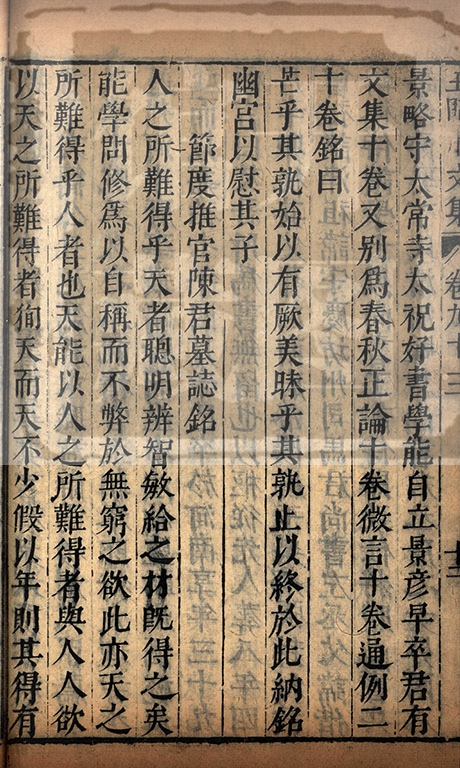 景略守太常寺太祝好書學能自立景彥早卒君有
文集十卷又別為春秋正論十卷微言十卷通例二
十卷銘曰
芒乎其孰始以有厥美昧乎其孰止以終於此納銘
幽宮以慰其子
節度推官陳君墓誌銘
人之所難得乎天者聰明辨智敏給之材既得之矣
能學問修為以自稱而不弊於無窮之欲此亦天之
所難得乎人者也天能以人之所難得者與人人欲
以天之所難得者徇天而天不少假以年則其得有